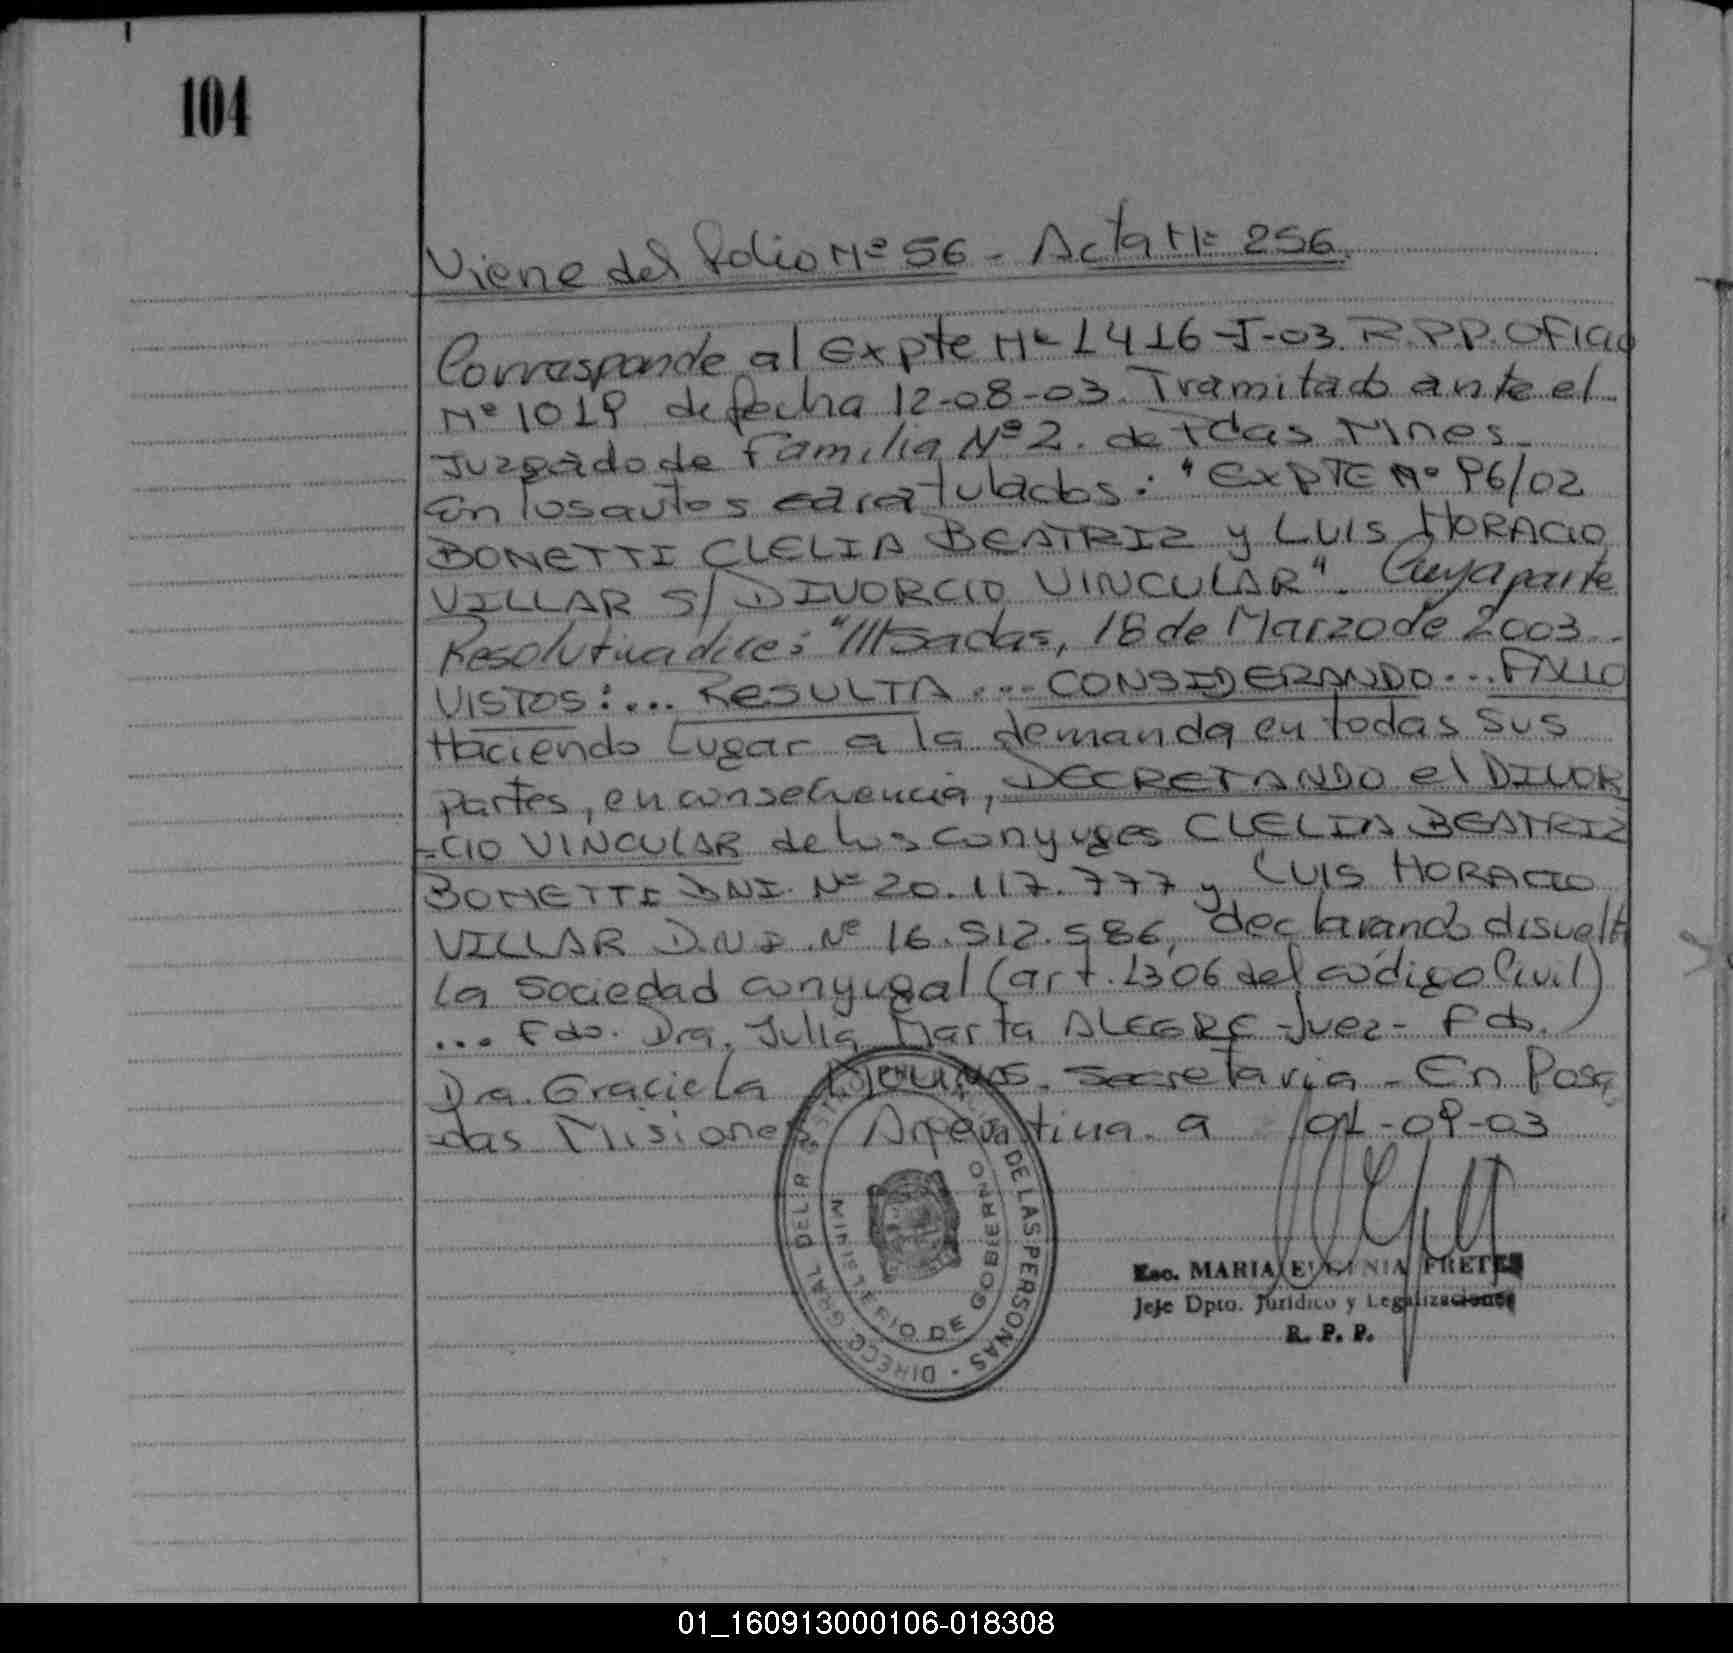 104
Viene del folio Nº 56 - Acta Nº 256.
Corresponde al Expte Nº 1416-J-03. R.P.P. Oficio
Nº 1019 de fecha 12-08-03. Tramitado ante el
Juzgado de Familia Nº 2. de Pdas Mnes.
En los autos caratulados: "EXPTE Nº 96/02
BONETTI CLELIA BEATRIZ y LUIS HORACIO
VILLAR S/ DIVORCIO VINCULAR". Cuya parte
Resolutiva dice: "///sadas, 18 de Marzo de 2003.
VISTOS:... RESULTA... CONSIDERANDO... FALLO
Haciendo Lugar a la demanda en todas sus
partes, en consecuencia, DECRETANDO el DIVOR
-CIO VINCULAR de los conyuges CLELIA BEATRIZ
BONETTI DNI. Nº 20.117.777 y LUIS HORACIO
VILLAR D.N.I. Nº 16.512.586, declarando disuelta
la Sociedad conyugal (art. 1306 del código Civil)
... Fdo. Dra. Julia Marta ALEGRE - Juez - Fdo.
Dra. Graciela - Secretaria - En Posa
-das Misiones Argentina. a 01-09-03
DE LAS PERSONAS - DIRECC GRAL DEL R
MINISTERIO DE GOBIERNO
Esc. MARIA EUGENIA FRETES
Jefe Dpto. Jurídico y Legalizaciones
R. P. P.
01_160913000106-018308